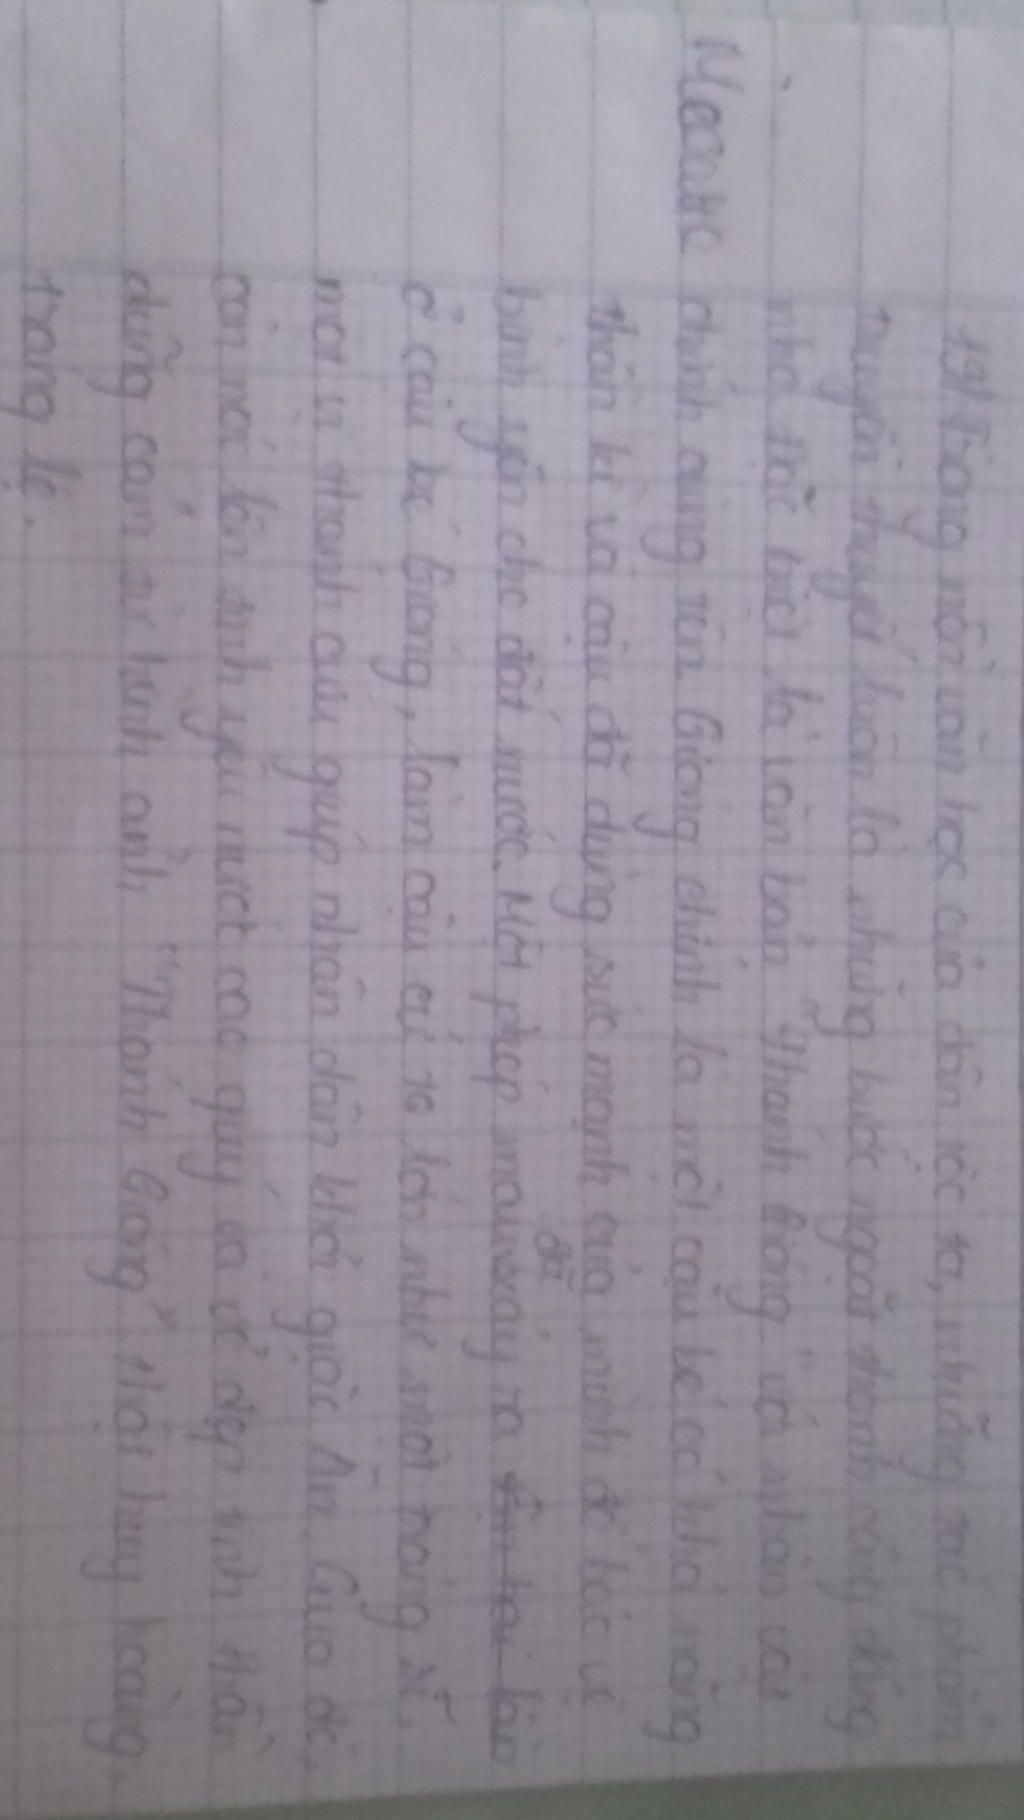 19/ Trong nền văn học của dân tộc ta, những tác phẩm
truyền thuyết luôn là những bước ngoặt thành công đáng
nhớ đặc biệt là văn bản "Thánh Gióng" với nhân vật
chính cùng tên Gióng chính là một cậu bé có khả năng
thần kì và cậu đã dùng sức mạnh của mình để bảo vệ
bình yên cho đất nước. Một phép màu xảy ra đã
ở cậu bé Gióng, làm cậu cứ to lớn như một tráng sĩ,
một vị thánh cứu giúp nhân dân khỏi giặc Ân. Qua đó,
còn nói lên tình yêu nước cao quý và ở đẹp tinh thần
dũng cảm từ hình ảnh "Thánh Gióng" thật huy hoàng,
tráng lệ.